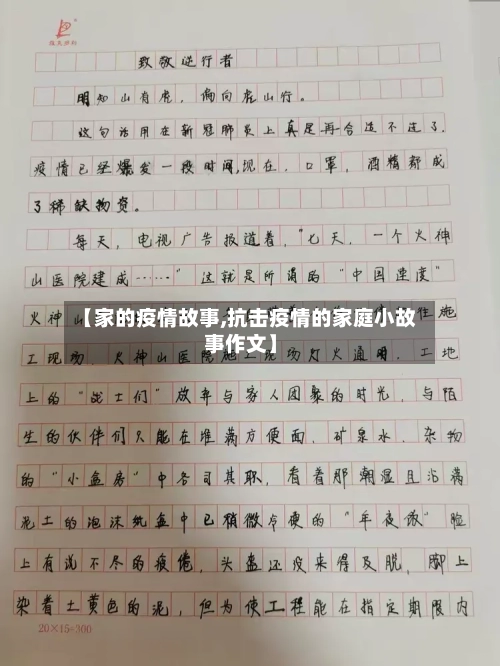 致敬逆行者
明知山有虎，偏向虎山行。
这句话用在新冠肺炎上真是再合适不过了.
疫情已经爆发一段时间,现在，口罩，酒精都成
了稀缺物资。
每天，电视广告报道着，“七天，一个火神
山医院建成……”这就是所谓的“中国速度”
火神山
【家的疫情故事,抗击疫情的家庭小故
事作文】
工现场，火神山医院施工现场灯火通明．工地
上的“战士们”放弃与家人团聚的时光，与陌
生的伙伴们只能在堆满方便面．矿泉水．杂物
的“小盒房”中各司其职，看着那潮湿且沾满
泥土的泡沫纸盒中已稍微冷硬的“年夜饭”脸
上有说不尽的疲倦，头盔还没来得及脱，脚上
染着土黄色的泥，但为使工程能在指定期限内
20×15=300